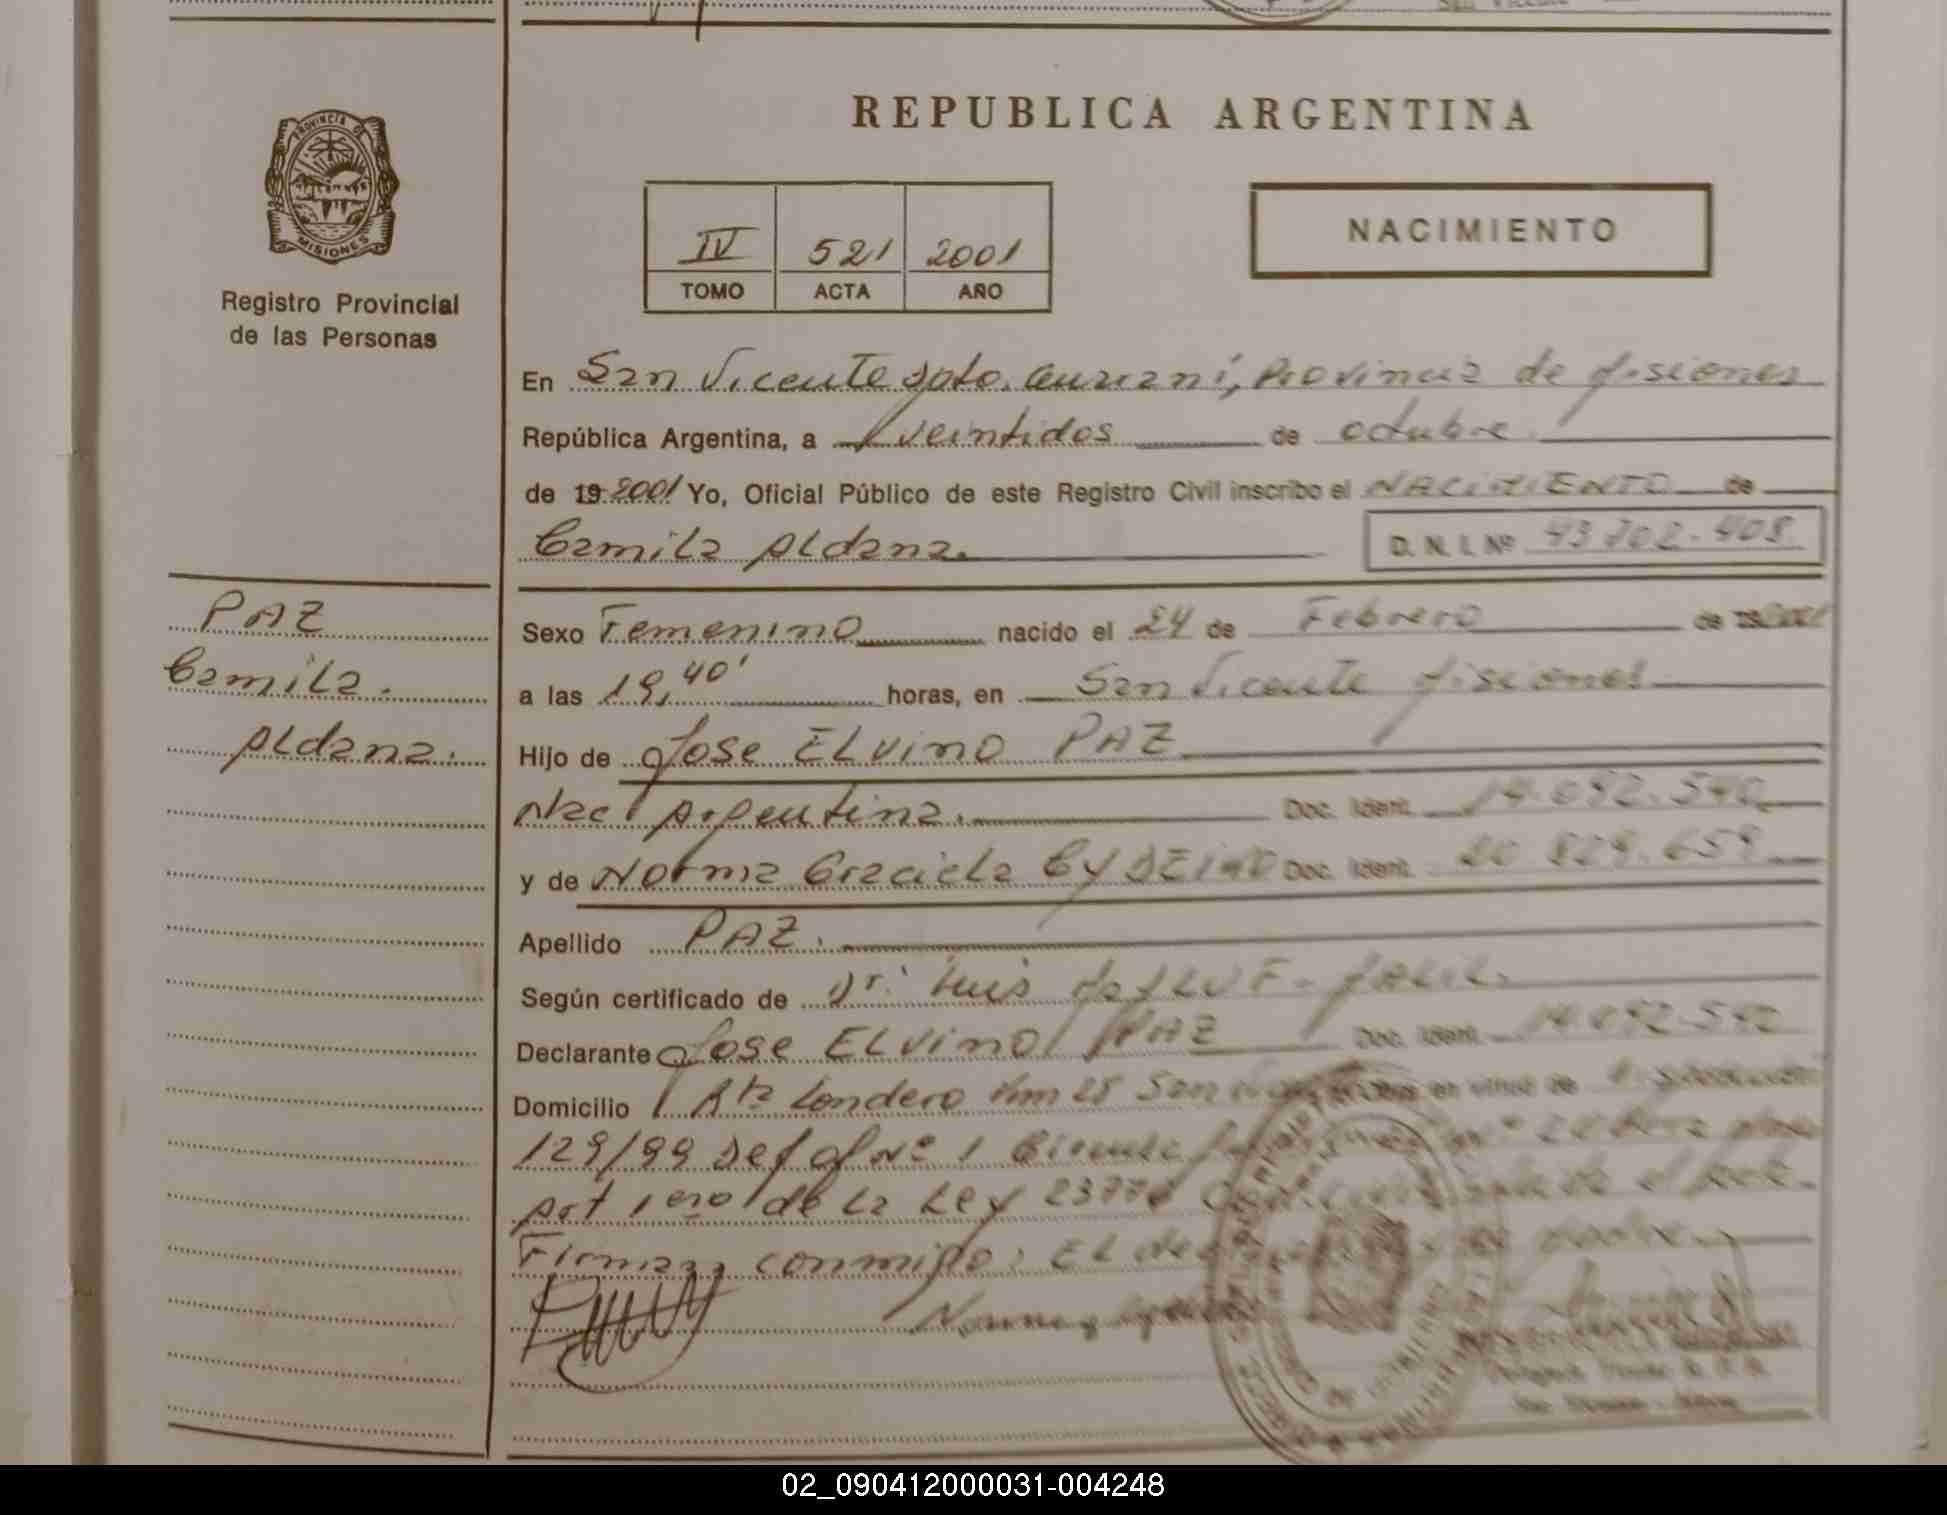 REPUBLICA ARGENTINA
PROVINCIA DE
MISIONES
Registro Provincial
de las Personas
IV 521 2001
TOMO ACTA AÑO
NACIMIENTO
En San Vicente Dpto. Guarani, Provincia de Misiones
República Argentina, a veintidos de octubre
de 19 2001 Yo, Oficial Público de este Registro Civil inscribo el NACIMIENTO de
Camila Aldana. D. N. I. Nº 43.202.408
PAZ
Camila.
Aldana.
Sexo Femenino nacido el 24 de Febrero de
a las 19,40' horas, en San Vicente Misiones
Hijo de Jose ELvino PAZ
Nac Argentina. Doc. Ident. 14.092.540
y de Norma Graciela Doc. Ident. 20 829.659
Apellido PAZ.
Según certificado de Dr. Luis
Declarante Jose ELvino PAZ Doc. Ident. 14.092.540
Domicilio Rta Londero Km 28 San en virtud de
129/99 Def Nº 1
Art 1ero de la Ley
Firman conmigo: EL
02_090412000031-004248